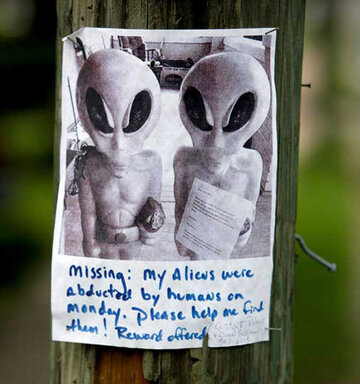 Missing: My Aliens were
abducted by humans on
monday. Please help me find
them! Reward offered